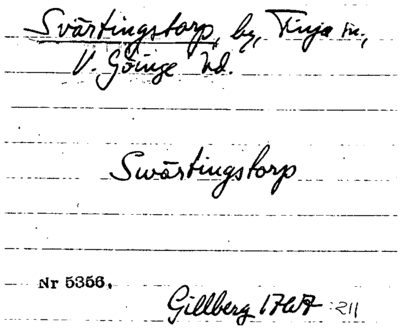 Svärtingstorp, by, Finja sn.,
V. Göinge hd.
Swärtingstorp
Nr 5356.
Gillberg 1767 :211